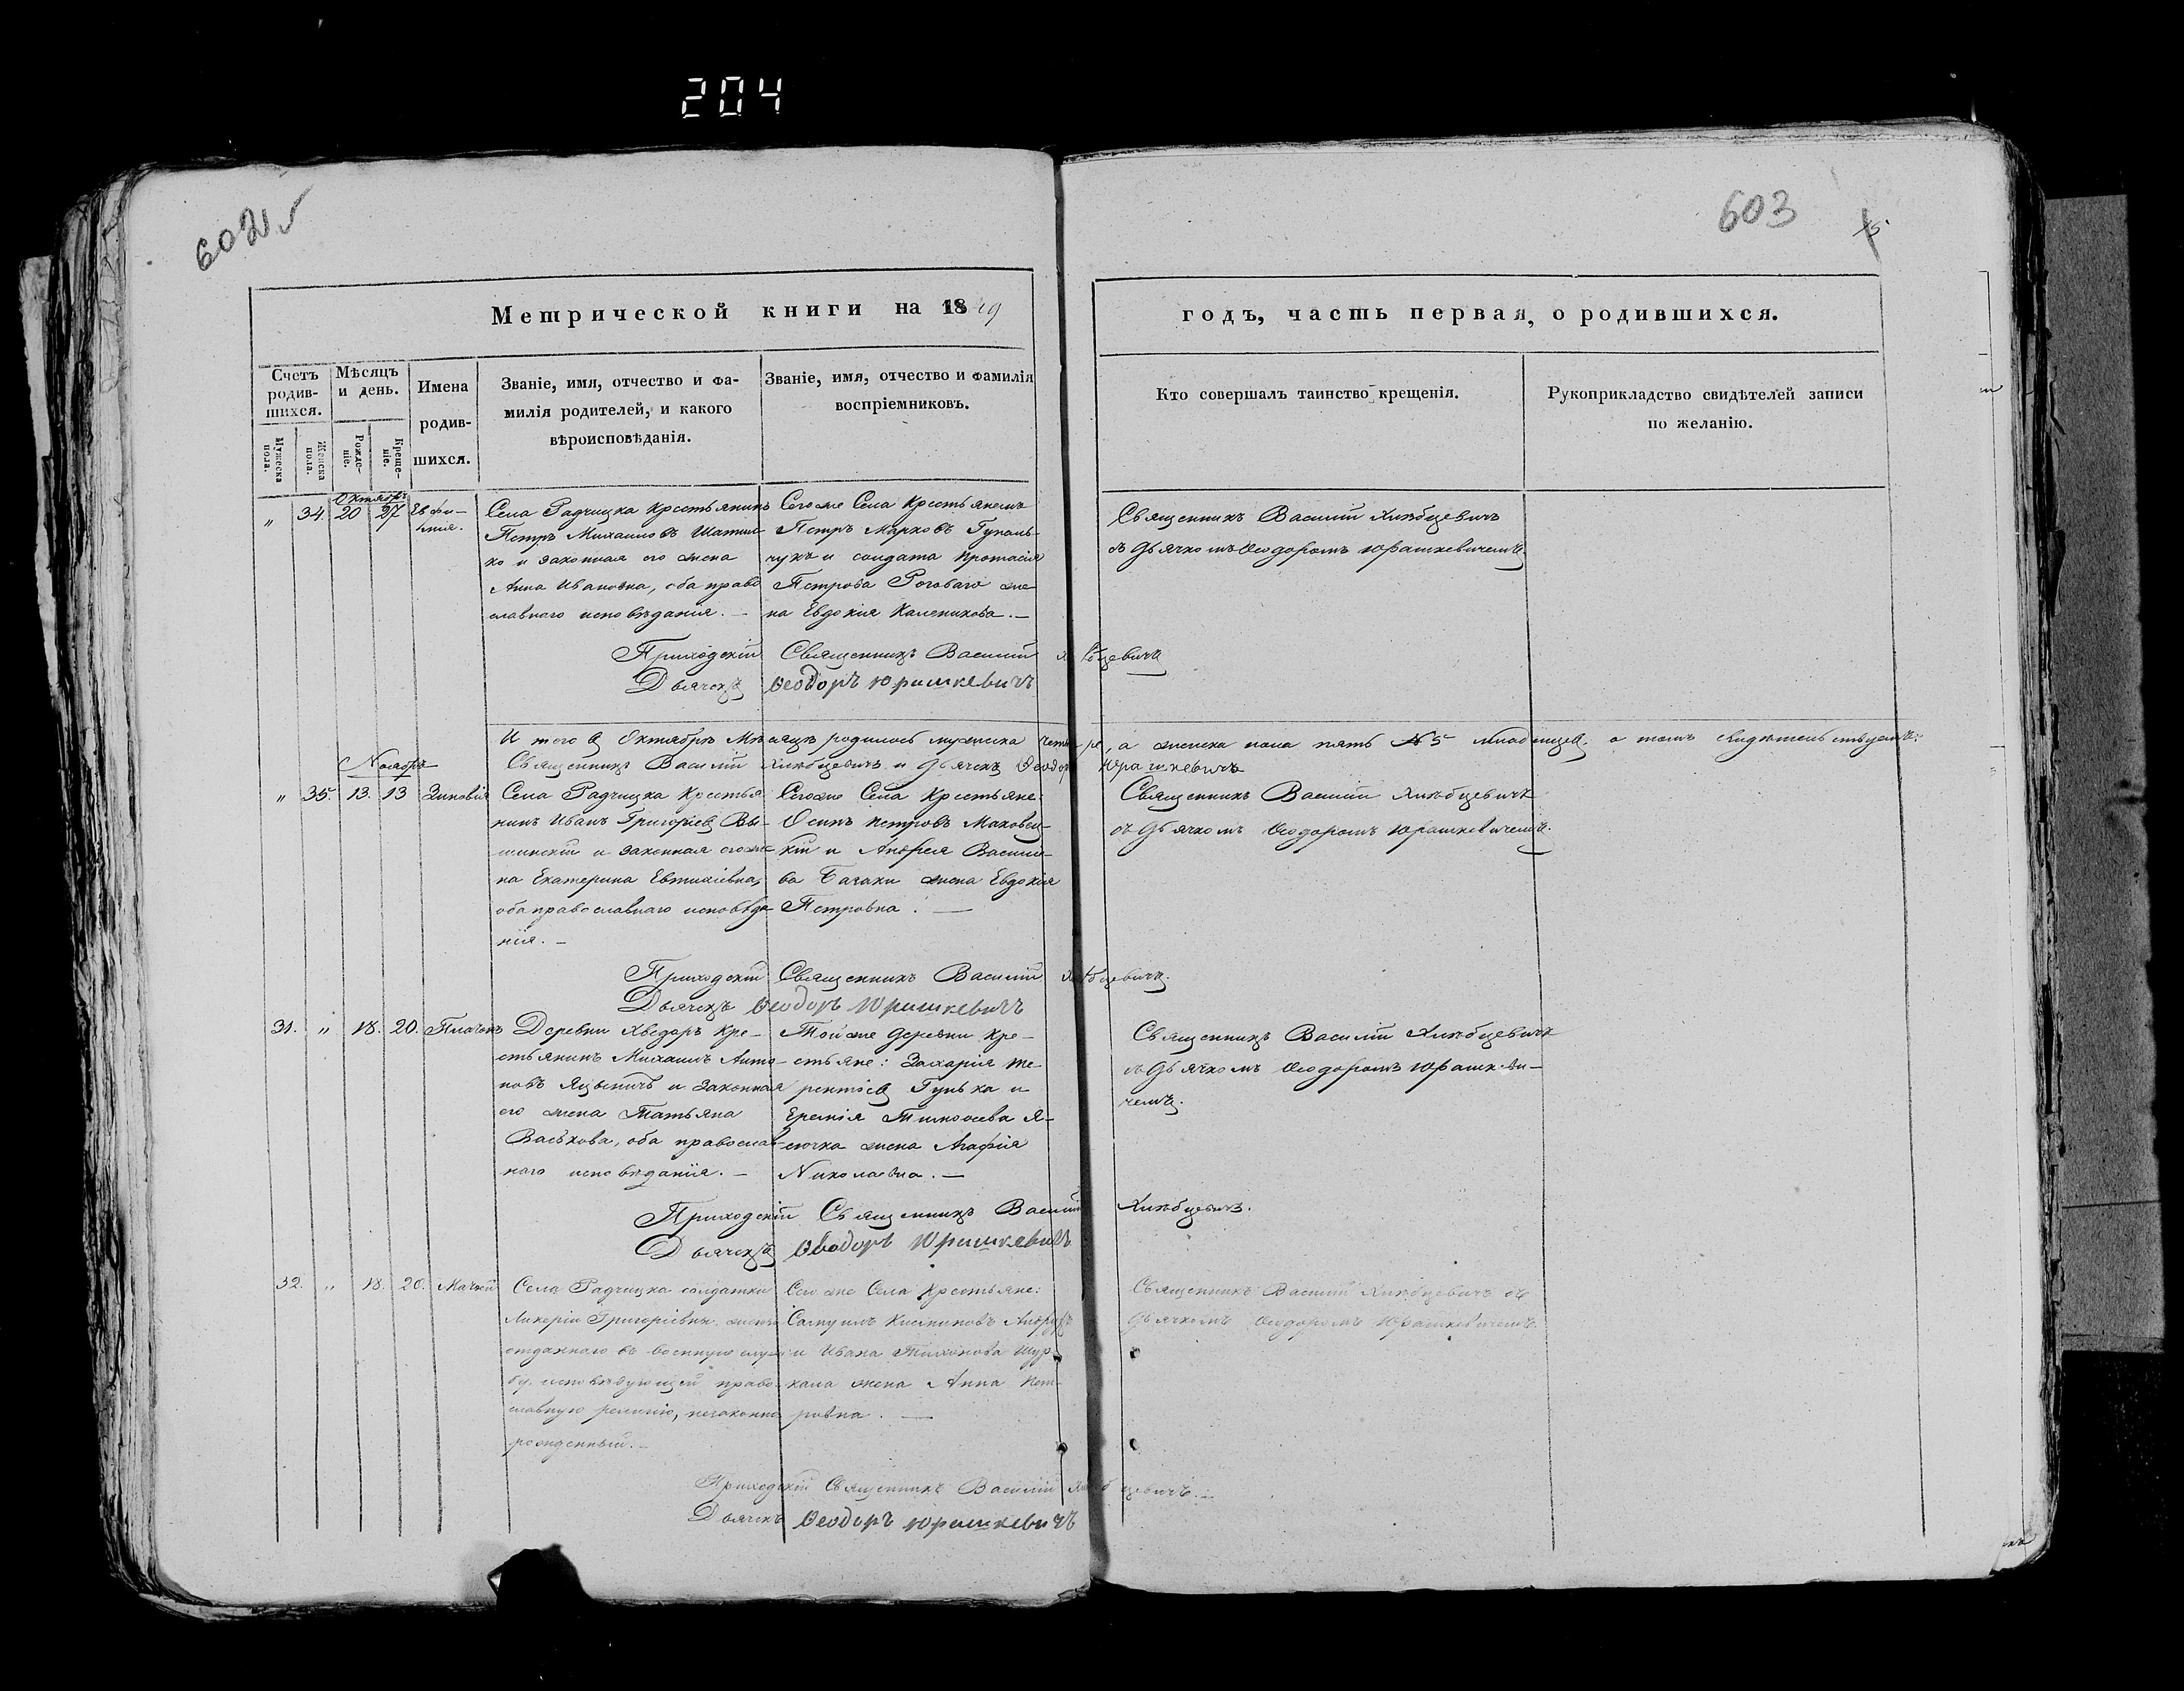 204
602
603
Метрической книги на 1849
годъ, часть первая, о родившихся.
Счетъ родив-
шихся.
Мѣсяцъ
и день.
Имена
родив-
шихся.
Званіе, имя, отчество и фа-
милія родителей, и какого
вѣроисповѣданія.
Званіе, имя, отчество и фамилія
воспріемниковъ.
Кто совершалъ таинство крещенія.
Рукоприкладство свидѣтелей записи
по желанію.
Мужеска
пола.
Женска
пола.
Рожде-
ніе.
Креще-
ніе.
Октябрь
" 34. 20 27 Евфи-
мія.
Села Радчицка Крестьянинъ
Петръ Михаиловъ Шатил-
ко и законная его жена
Анна Ивановна, оба право
славнаго исповѣданія. —
Тогоже Села Крестьянинъ
Петръ Марковъ Гуполь-
чукъ и солдата Протасія
Петрова Роговаго же-
на Евдокія Каленикова. —
Священникъ Василій Хлѣбцевичъ
съ Дьячкомъ Ѳеодоромъ Юрашкевичемъ.
Приходскій Священникъ Василій Хлѣбцевичъ
Дьячекъ Ѳеодоръ Юрашкевичъ
И того въ Октябрѣ Мѣсяцѣ родилось мужеска четыре, а женска пола пять № 5 младенцевъ о томъ свидѣтельствуемъ:
Священникъ Василій Хлѣбцевичъ и Дьячекъ Ѳеодоръ Юрашкевичъ
Ноябрь
" 35. 13. 13 Зиновія
Села Радчицка Крестья-
нинъ Иванъ Григорьевъ Вы-
шинскій и законная его же-
на Екатерина Евтихіевна,
оба православнаго исповѣда-
нія. —
Тогоже Села Крестьяне:
Осипъ Петровъ Маковец-
кій и Андрея Василіе-
ва жена Евдокія
Петровна. —
Священникъ Василій Хлѣбцевичъ
съ Дьячкомъ Ѳеодоромъ Юрашкевичемъ.
Приходскій Священникъ Василій Хлѣбцевичъ.
Дьячекъ Ѳеодоръ Юрашкевичъ
31. " 18. 20. Платонъ
Деревни Хведоръ Кре-
стьянинъ Михаилъ Анто-
новъ Яцыничъ и законная
его жена Татьяна
Васькова, оба православ-
наго исповѣданія. —
Тойже Деревни Кре-
стьяне: Захарія Те-
рентіевъ Гунька и
Еремія Тимоѳеева Я-
сючка жена Агафія
Николаевна. —
Священникъ Василій Хлѣбцевичъ
съ Дьячкомъ Ѳеодоромъ Юрашкеви-
чемъ.
Приходскій Священникъ Василій Хлѣбцевичъ.
Дьячекъ Ѳеодоръ Юрашкевичъ
32. " 18. 20.
Села Радчицка солдатки
Ликеріи Григоріевны, жены
отданнаго въ военную служ-
бу, исповѣдующей право-
славную религію, незаконно
рожденный. —
Тогоже Села Крестьяне:
Самуилъ
и Ивана Тихонова Шур-
кала жена Анна Пет-
ровна. —
Священникъ Василій Хлѣбцевичъ съ
Дьячкомъ Ѳеодоромъ Юрашкевичемъ.
Приходскій Священникъ Василій Хлѣбцевичъ. —
Дьячекъ Ѳеодоръ Юрашкевичъ